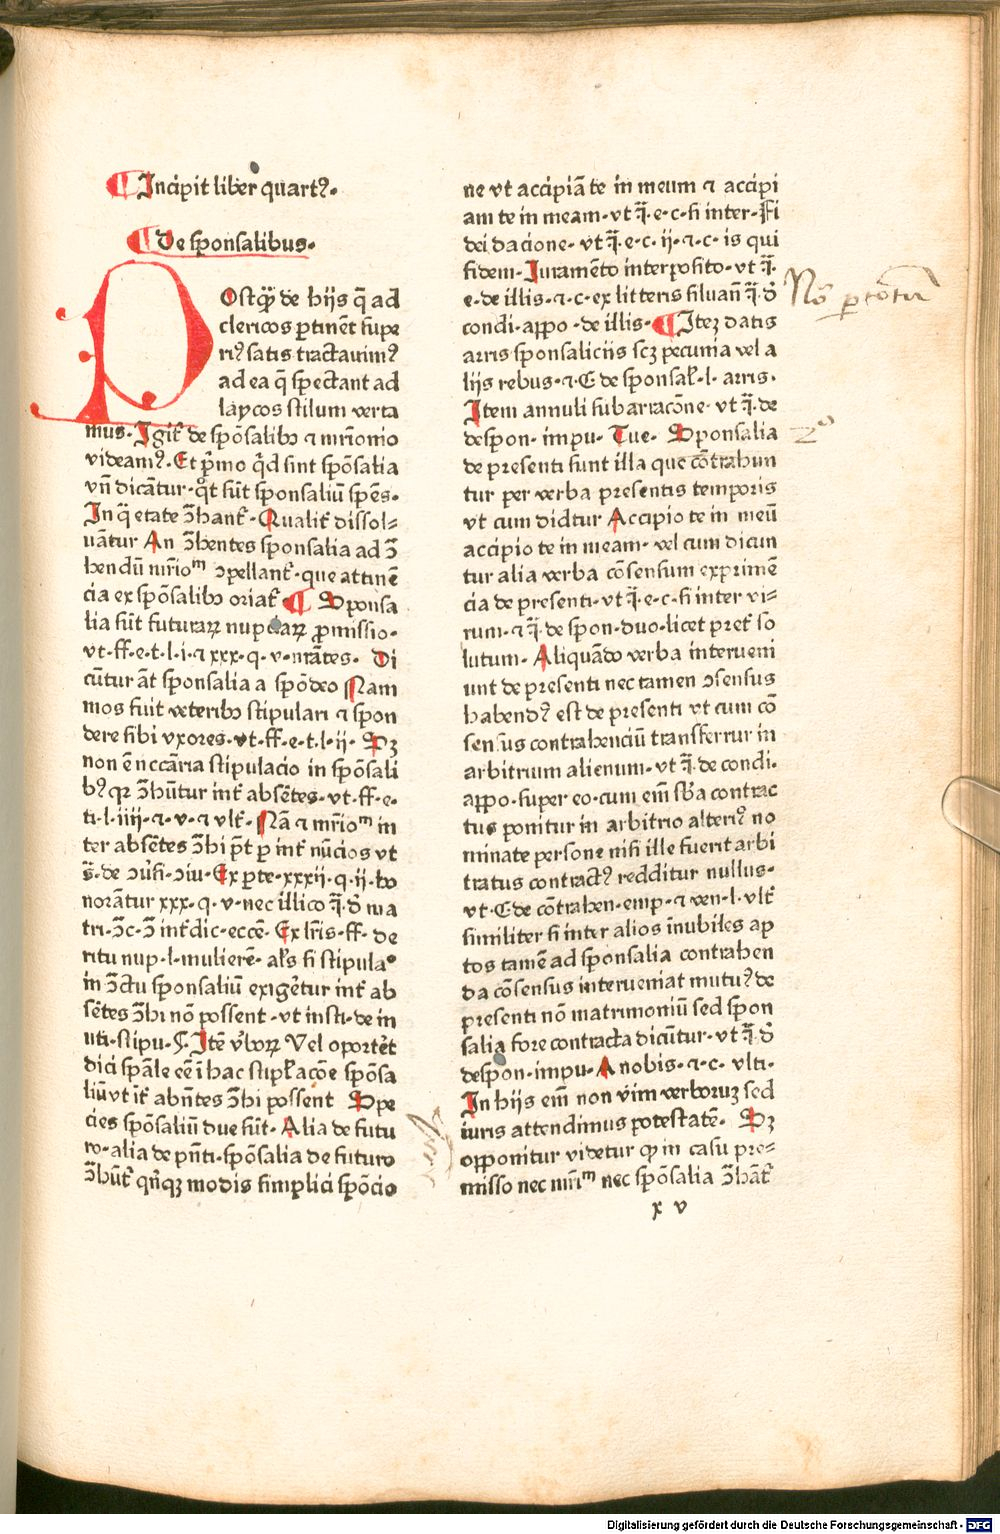 ¶ Incipit liber quartꝰ.
¶ De sponsalibus.
POstq̄ꝫ de hijs q̄ ad
clericos ꝑtinēt supe
riꝰ satis tractauimꝰ
ad ea q̄ spectant ad
laycos stilum verta
mus. Igit᷑ de spōsalibꝫ ⁊ mr̄imonio
videamꝰ. Et p̄mo qͥd sint spōsalia
vn̄ dicātur. qͦt sūt sponsaliū sp̄es.
In q̄ etate ꝯ̄hant᷑. Qualit᷑ dissol⸗
uātur An ꝯ̄hentes sponsalia ad ꝯ̄
hendū mr̄ioᵐ ꝯpellant᷑. que attinē
cia ex spōsalibꝫ oriat᷑ ¶ Sponsa
lia sūt futuraꝝ nupciaꝝ ꝓmissio.
vt. ff. e. t. l. i. ⁊ xxx. q. v. nr̄ātes. Di
cūtur āt sponsalia a spōdeo Nam
mos fuit veteribꝫ stipulari ⁊ spon
dere sibi vxores. vt. ff. e. t. l. ij. Sꝫ
non ē nccāria stipulacio in spōsali
bꝰ qꝛ ꝯ̄hūtur int᷑ absētes. vt. ff. e.
ti. l. iiij. ⁊. v. ⁊ vlt᷑. Nā ⁊ mr̄ioᵐ in
ter absētes ꝯ̄hi p̄t ꝑ int᷑ nūcios vt
s̄. de ꝯūsi. ꝯiu. Ex ꝑte. xxxij. q. ij. ho
norātur xxx. q. v. nec illico q̄. d̄ ma
tri. ꝯ̄c. ꝯ̄ int᷑dic. eccē. Ex lr̄is. ff. de
ritu nup. l. mulierē. al's si stipulaᵒ
in ꝯ̄ctu sponsaliū exigētur int᷑ ab
sētes ꝯ̄hi nō possent. vt insti. de in
uti. stipu. §. Itē v̄boꝝ Vel oportēt
dici sp̄ale eē ī hac stipl'acōe spōsa
liū vt it᷑ abn̄tes ꝯ̄hi possent Spe
cies spōsaliū due sūt. Alia de futu
ro. alia de pn̄ti. spōsalia de futuro
ꝯ̄hūt᷑ qn̄qꝫ modis simplici spōcio
ne vt accipiā te in meum ⁊ accipi
am te in meam. vt q̄. e. c. si inter. Fi
dei dacione. vt q̄. e. c. ij. ⁊. c. is qui
fidem. Iuramēto interposito. vt q̄.
e. de illis. ⁊. c. ex litteris siluan̄ q̄. d̄
condi. appo. de illis. ¶ Iteꝫ datis
arris sponsaliciis scꝫ pecunia vel a
liis rebus. ⁊. C de sponsal'. l. arris.
Item annuli subarracōne. vt q̄. de
despon. impu. Tue. Sponsalia
de presenti sunt illa que cōtrahun
tur per verba presentis temporis
vt cum dicitur Accipio te in meū
accipio te in meam. vel cum dicun
tur alia verba cōsensum exprimē
cia de presenti. vt q̄. e. c. si inter vi⸗
rum. ⁊ q̄. de spon. duo. licet pret᷑ so
lutum. Aliquādo verba interueni
unt de presenti nec tamen ꝯsensus
habendꝰ est de presenti vt cum cō
sensus contrahenciū transferrur in
arbitrium alienum. vt q̄. de condi.
appo. super eo. cum em̄ sb̄a contrac
tus ponitur in arbitrio alteriꝰ no
minate persone nisi ille fuerit arbi
tratus contractꝰ redditur nullus.
vt. C de cōtrahen. emp. ⁊ ven. l. vlt᷑
similiter si inter alios inubiles ap
tos tamē ad sponsalia contrahen
da cōsensus interueniat mutuꝰ de
presenti nō matrimoniū sed spon
salia fore contracta dicūtur. vt q̄. d̄
despon. impu. A nobis. ⁊. c. vlti.
In hijs em̄ non vim verboruꝫ sed
iuris attendimus potestatē. Sꝫ
opponitur videtur ꝙ in casu pre⸗
misso nec mr̄iᵐ nec spōsalia ꝯ̄hāt᷑
x v
2°
Digitalisierung gefördert durch die Deutsche Forschungsgemeinschaft - DFG